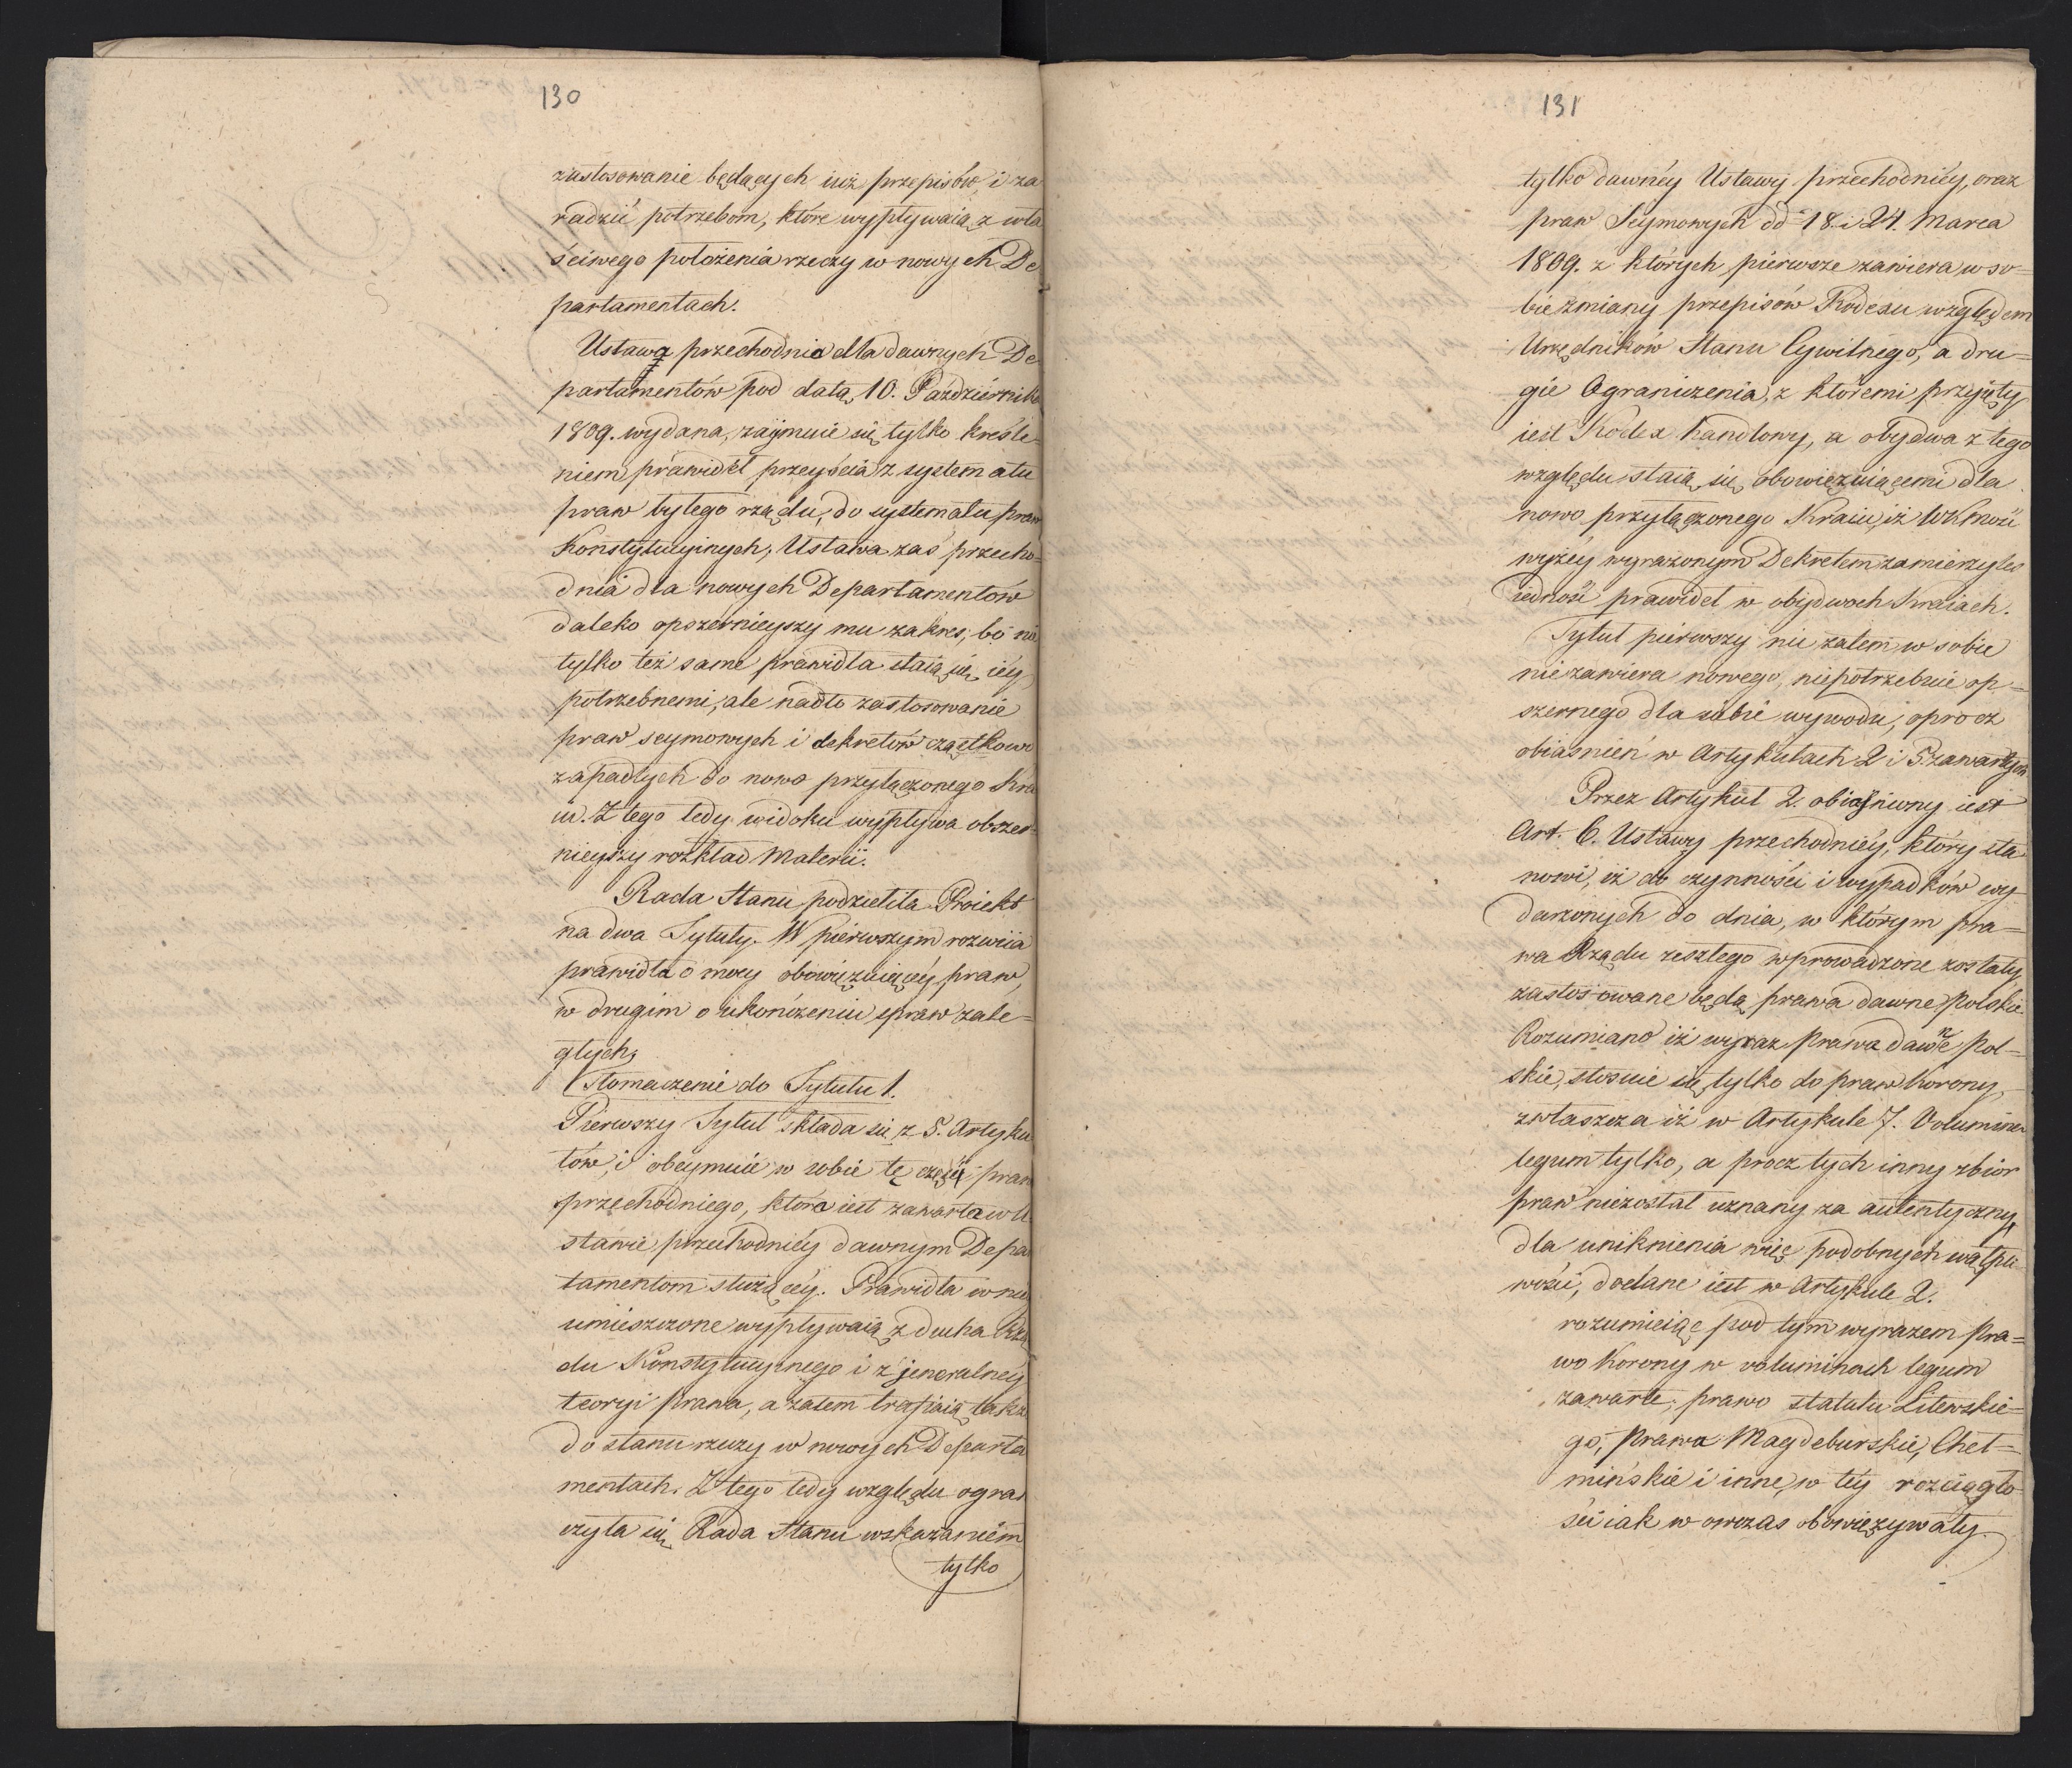 130
zastosowanie będących iuż przepisów, i za
radzić potrzebom, które wypływaią z wła
ściwego położenia rzeczy w nowych De
partamentach.
Ustawa przechodnia dla dawnych De
partamentów pod datą 10. Październik
1809. wydana, zaymuie się tylko kreśle-
niem prawideł przeyścia z systematu
praw byłego rządu, do systematu praw
Konstytucyinych, Ustawa zaś przecho=
dnia dla nowych Departamentów
daleko opszernieyszy mu zakres; bo nie
tylko też same prawidła staią się iéy
potrzebnemi, ale nadto zastosowanie
praw seymowych i dekretów cząstkowo
zapadłych do nowo przyłączonego Kra
iu. Z tego tedy widoku wypływa obszer=
nieyszy rozkład Materii.
Rada Stanu podzieliła Proiekt
na dwa Tytuły. W pierwszym rozwiia
prawidła o mocy obowięzuiącéy praw,
w drugim o ukończeniu spraw zale=
głych.
Tłomaczenie do Tytułu 1.
Pierwszy Tytuł składa się z 5. Artyku
łów, i obeymuie w sobie tę część praw
przechodniego, która iest zawarta w U
stawie przechodniéy dawnym Depa
tamentom służącéy. Prawidła w nié
umieszczone wypływaią z ducha Rzą
du Konstytucyinego i z jeneralnéy
teoryi prawa, a zatem trafiaią takż
do stanu rzeczy w nowych Departa
mentach. Z tego tedy względu ogran
czyła się Rada Stanu wskazaniem
tylko
131
tylko dawnéy Ustawy przechodniéy, oraz
praw Seymowych dd 18. i 24. Marca
1809. z których piérwsze zawiera w so=
bie zmiany przepisów Kodexu względem
Urzędników Stanu Cywilnego, a dru=
gie Ograniczenia, z któremi przyięty
iest Kodex handlowy, a obydwa z tego
względu staią się obowięzuiącemi dla
nowo przyłączonego Kraiu, iż WKMość
wyżéy wyrażonym Dekretem zamierzyłeś
iedność prawideł w obydwoch Kraiach.
Tytuł pierwszy nie zatem w sobie
niezawiera nowego, niepotrzebuie op=
szernego dla siebie wywodu, oprocz
obiaśnień w Artykułach 2 i 5. zawartych
Przez Artykuł 2. obiaśniony iest
Art. 6. Ustawy przechodniéy, który sta
nowi, iż do czynności i wypadków wy=
darzonych do dnia, w którym pra=
wa Rządu zeszłego wprowadzone zostały,
zastosowane będą prawa dawne Polskie
Rozumiano iż wyraz prawa dawne Pol=
skie, stosuie się tylko do praw Korony,
zwłaszcza iż w Artykule 7. Volumina
legum tylko, a procz tych inny zbiór
praw niezostał uznany za autentyczny,
dla uniknienia więc podobnych wątpli
wości, dodane iest w Artykule 2.
rozumieiąc pod tym wyrazem pra=
wo Korony w voluminach legum
zawarte; prawo statutu Litewskie=
go, prawa Magdeburskie, Cheł=
mińskie i inne, w téy rozciągło
ści iak w owczas obowięzywały.